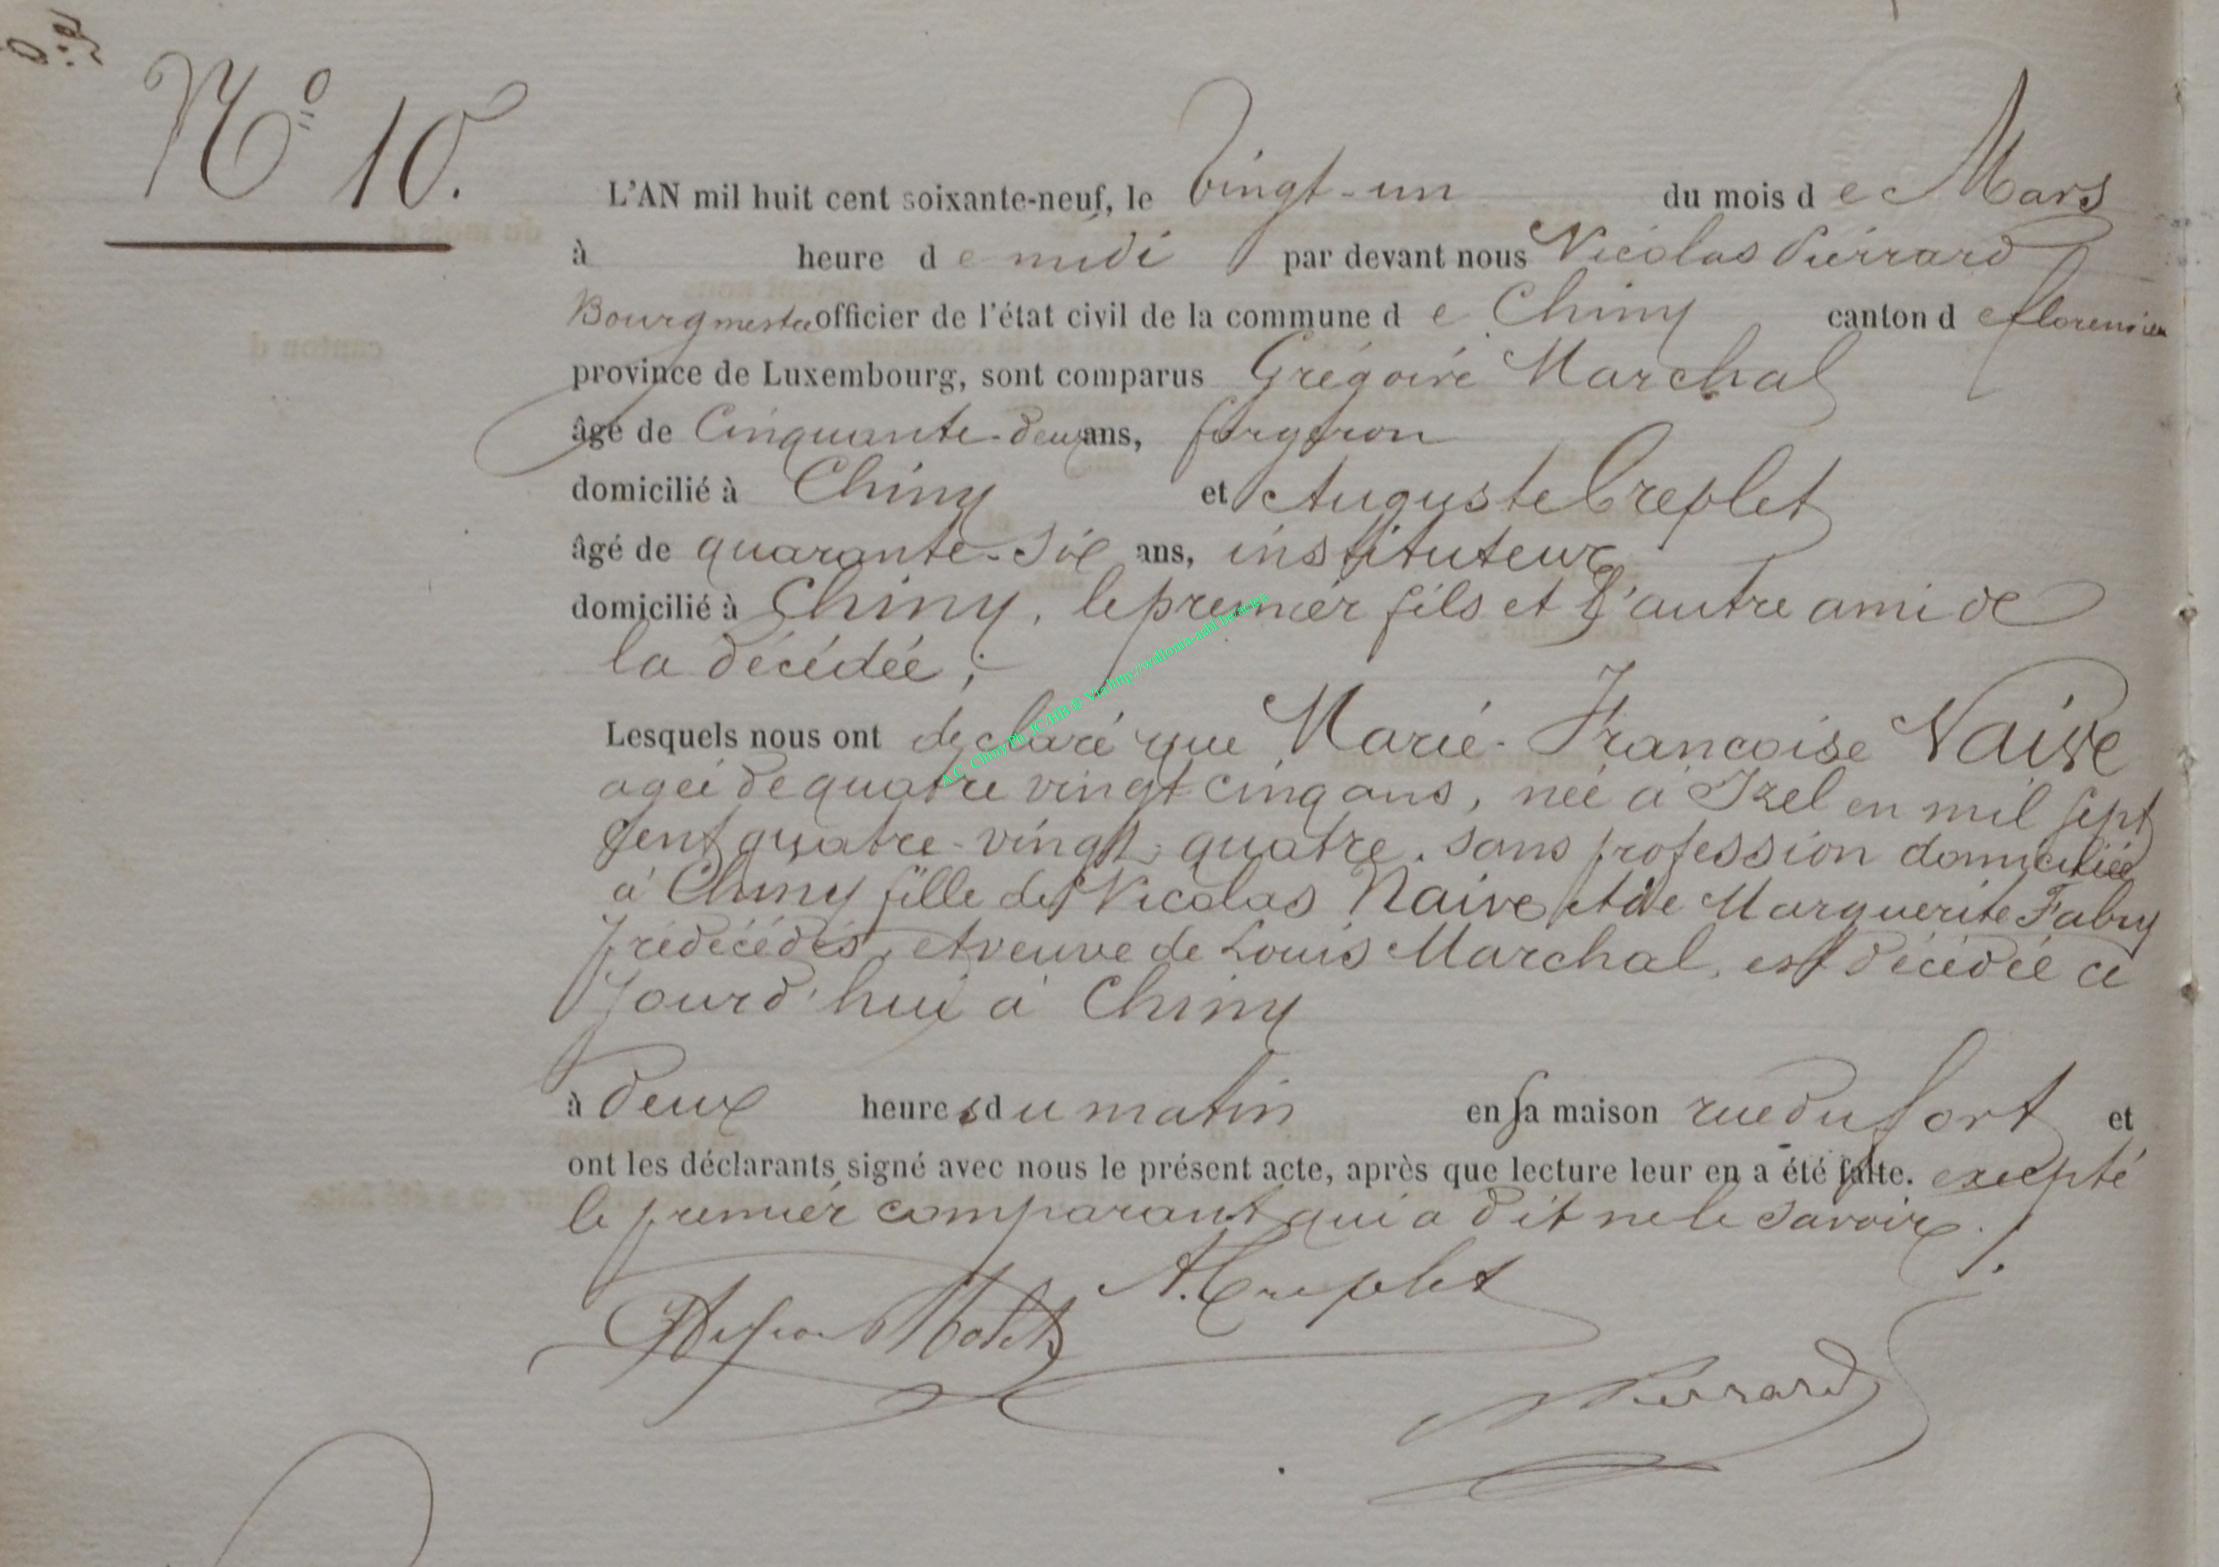 N° 10.
L'AN mil huit cent soixante-neuf, le Vingt-un du mois de Mars
à heure de midi par devant nous Nicolas Piérrard
Bourgmestre officier de l'état civil de la commune de Chiny canton de florenville
province de Luxembourg, sont comparus Grégoire Marchal
âgé de Cinquante-deux ans, forgeron
domicilié à Chiny et Auguste Creplet
âgé de quarante-six ans, instituteur
domicilié à Chiny, le premiér fils et l'autre ami de
la décédée ;
Lesquels nous ont declaré que Marie-Francoise Naive
agée de quatre vingt-cinq ans, née à Izel en mil sept
cent quatre-vingt-quatre. sans profession domiciliée
à Chiny fille de Nicolas Naive et de Marguerite Fabry
prédécédés, et veuve de Louis Marchal, est décédée ce
jourd'hui à Chiny
à deux heures du matin en sa maison rue du fort et
ont les déclarants signé avec nous le présent acte, après que lecture leur en a été faite. excepté
le premiér comparant qui a dit ne le savoir.
A. Creplet
Pierrard
A.C. Chiny Ph. JC.HB @ Via http://wallonia-asbl.be/actes